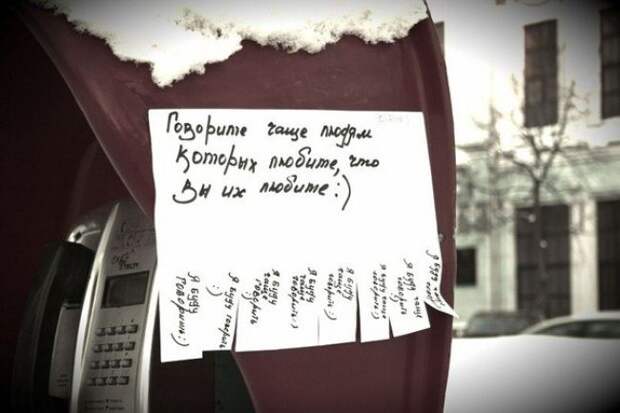 Говорите чаще людям
Которых любите, что
Вы их любите :)
Я буду
Говорить :)
Я буду говорить
:)
Я буду
чаще
говорить
Я буду
чаще
говорить :)
Я буду
чаще
говорить
Я буду чаще
говорить
Я буду
говорить
чаще
Я буду